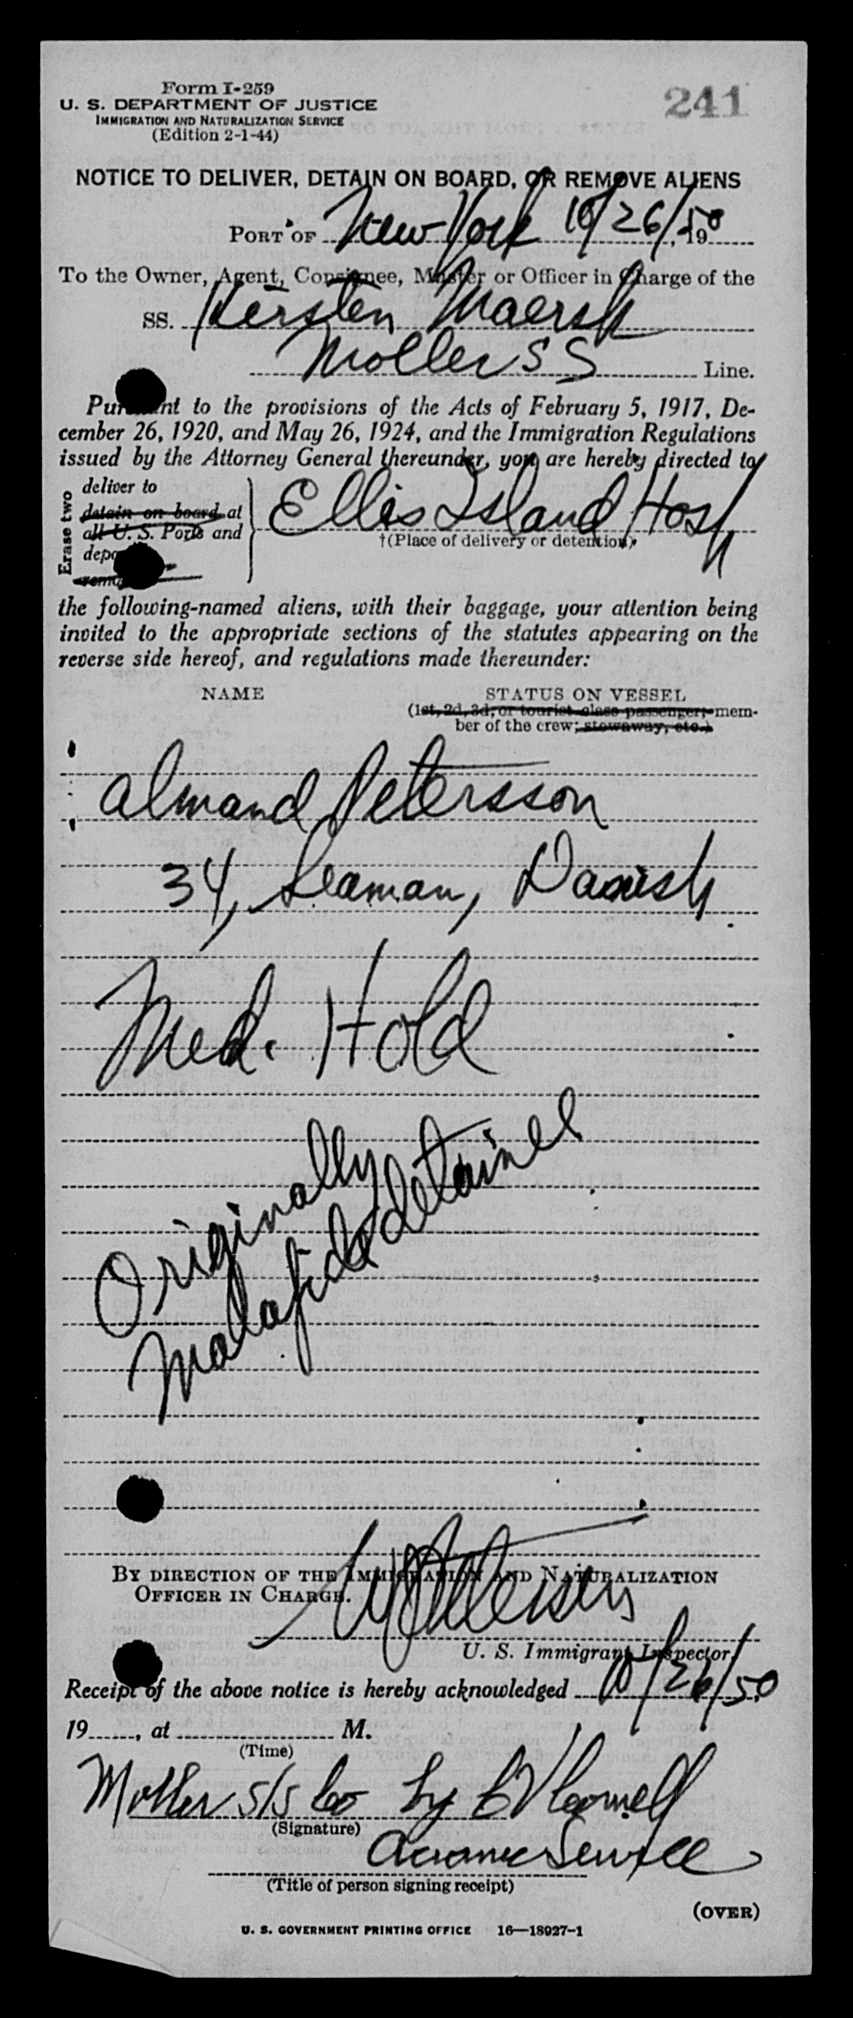 Form I-259
241
U. S. DEPARTMENT OF JUSTICE
IMMIGRATION AND NATURALIZATION SERVICE
(Edition 2-1-44)
NOTICE TO DELIVER, DETAIN ON BOARD, OR REMOVE ALIENS
PORT OF New York 10/26/50, 19
To the Owner, Agent, Consignee, Master or Officer in Charge of the
SS. Kirsten Maersk
Moller SS Line.
Pursuant to the provisions of the Acts of February 5, 1917, De-
cember 26, 1920, and May 26, 1924, and the Immigration Regulations
issued by the Attorney General thereunder, you are hereby directed to
Erase two
deliver to
detain on board at
all U. S. Ports and
Ellis Island Hosp
†(Place of delivery or detention)
the following-named aliens, with their baggage, your attention being
invited to the appropriate sections of the statutes appearing on the
reverse side hereof, and regulations made thereunder:
NAME STATUS ON VESSEL
(1st, 2d, 3d, or tourist class passenger; mem-
ber of the crew; stowaway, etc.)
Almand Petersson
34, Seaman, Danish
Med. Hold
Originally
Malafide detained
BY DIRECTION OF THE IMMIGRATION AND NATURALIZATION
OFFICER IN CHARGE.
U. S. Immigrant Inspector.
Receipt of the above notice is hereby acknowledged 10/26/50
19......, at .................. M.
(Time)
Moller S/S Co by
(Signature)
(Title of person signing receipt)
(OVER)
U. S. GOVERNMENT PRINTING OFFICE 16—18927-1